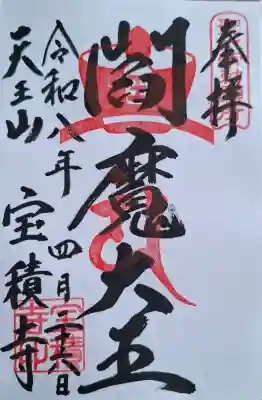 奉拝
閻魔大王
令和八年四月二十六日
天王山
宝積寺